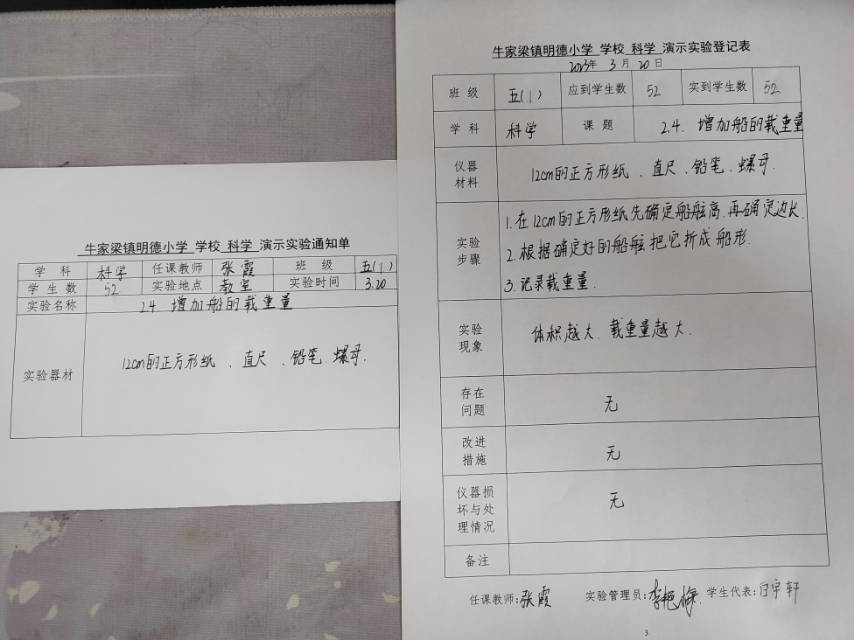 牛家梁镇明德小学 学校 科学 演示实验通知单
学 科 科学 任课教师 张霞 班 级 五(1)
学 生 数 52 实验地点 教室 实验时间 3.20
实验名称 2.4 增加船的载重量
实验器材 12cm的正方形纸 、直尺 、铅笔、螺母.
牛家梁镇明德小学 学校 科学 演示实验登记表
2023年 3 月 20 日
班 级 五(1) 应到学生数 52 实到学生数 52
学 科 科学 课 题 2.4. 增加船的载重量
仪器
材料
12cm的正方形纸 、直尺、铅笔、螺母.
实验
步骤
1.在12cm的正方形纸先确定船舷高.再确定边长.
2.根据确定好的船舷把它折成船形.
3.记录载重量.
实验
现象
体积越大、载重量越大.
存在
问题
无
改进
措施
无
仪器损
坏与处
理情况
无
备注
任课教师:张霞 实验管理员:李艳梅 学生代表:白宇轩
3